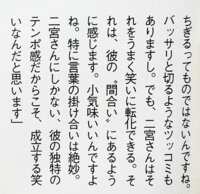 ちぎるってものではないんですね。
バッサリと切るようなツッコミも
ありますし。でも、二宮さんはそ
れをうまく笑いに転化できる。そ
れは、彼の〝間合い〟にあるよう
に感じます。小気味いいんですよ
ね。特に言葉の掛け合いは絶妙。
二宮さんにしかない、彼の独特の
テンポ感だからこそ、成立する笑
いなんだと思います」